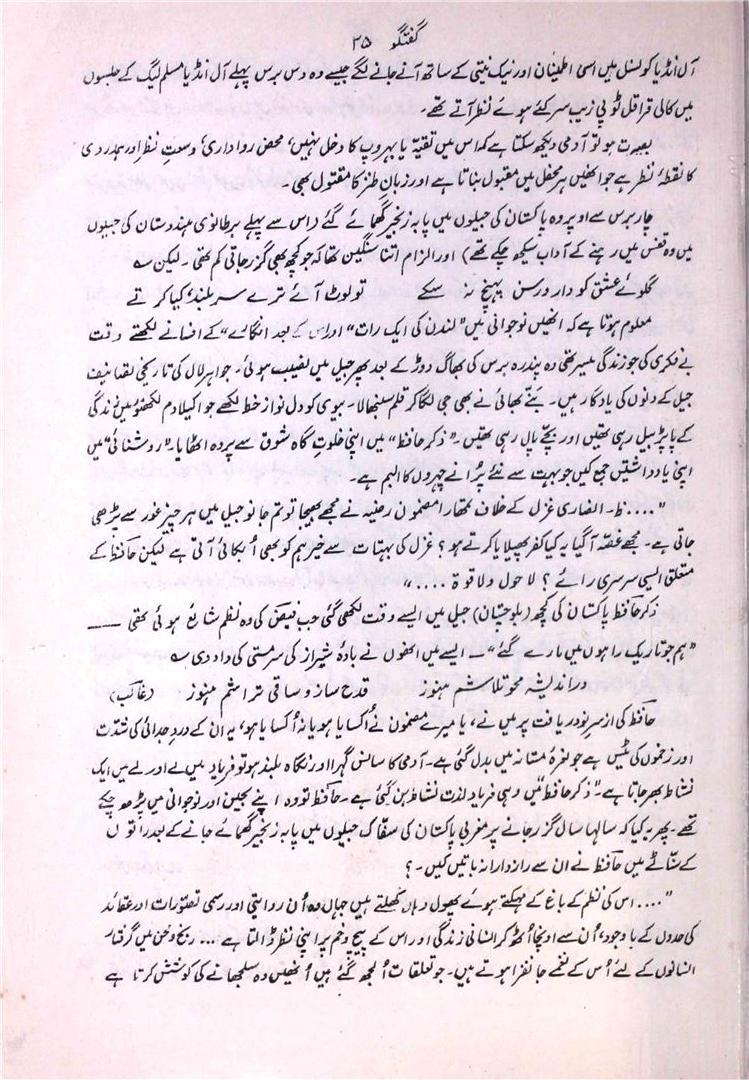 گفتگو ۳۵
آل انڈیا کونسل میں اسی اطینان اور نیک نیتی کے ساتھ آنے جانے لگے جیسے وہ دس برس پہلے آل انڈیا مسلم لیگ کے جلسوں
میں کالی قراقل ٹوپی زیب سر کئے ہوئے نظر آتے تھے۔
بصیرت ہو تو آدمی دیکھ سکتا ہے کہ اس میں تقیہ یا بہروپ کا دخل نہیں، محض رواداری، وسعتِ نظر اور ہمدردی
کا نقطۂ نظر ہے جو انھیں ہر محفل میں مقبول بناتا ہے اور زبانِ طنز کا مقتول بھی۔
چار برس سے اوپر وہ پاکستان کی جیلوں میں پابہ زنجیر گھمائے گئے (اس سے پہلے برطانوی ہندستان کی جیلوں
میں وہ قفس میں رہنے کے آداب سیکھ چکے تھے) اور الزام اتنا سنگین تھا کہ جو کچھ بھی گزر جاتی کم تھی۔ لیکن ؎
گلوئے عشق کو دار و رسن پہنچ نہ سکے تو لوٹ آئے ترے سر بلند، کیا کرتے
معلوم ہوتا ہے کہ انھیں نوجوانی میں "لندن کی ایک رات" اور اس کے بعد "انگارے" کے افسانے لکھتے وقت
بے فکری کی جو زندگی میسر تھی وہ پندرہ برس کی بھاگ دوڑ کے بعد پھر جیل میں نصیب ہوئی۔ جواہر لال کی تاریخی تصانیف
جیل کے دنوں کی یادگار ہیں۔ بنّے بھائی نے بھی جی لگا کر قلم سنبھالا۔ بیوی کو دل نواز خط لکھے جو اکیلا دم لکھنؤ میں زندگی
کے پاپڑ بیل رہی تھیں اور بچے پال رہی تھیں۔ "ذکر حافظ" میں اپنی خلوت گاہِ شوق سے پردہ اٹھایا۔ "روشنائی" میں
اپنی یادداشتیں جمع کیں جو بہت سے نئے پرانے چہروں کا البم ہے۔
"....ظ۔ انصاری غزل کے خلاف تمھارا مضمون رضیہ نے مجھے بھیجا تو تم جانو جیل میں ہر چیز غور سے پڑھی
جاتی ہے۔ مجھے غصّہ آگیا یہ کیا کفر پھیلایا کرتے ہو؟ غزل کی بہتات سے خیر ہم کو بھی اُبکائی آتی ہے لیکن حافظ کے
متعلق ایسی سرسری رائے؟ لاحول ولا قوۃ ....."
ذکرِ حافظ پاکستان کی مچھ (بلوچستان) جیل میں ایسے وقت لکھی گئی جب فیض کی وہ نظم شایع ہوئی تھی ——
"ہم جو تاریک راہوں میں مارے گئے" — ایسے میں انھوں نے بادۂ شیراز کی سرمستی کی داد دی ؎
در اندیشہ محوِ تلاشم ہنوز قدح ساز و ساقی تراشم ہنوز (غالب)
حافظ کی از سرِ نو دریافت پر میں نے، یا میرے مضمون نے اُکسایا ہو یا نہ اُکسایا ہو، یہ ان کے دردِ جدائی کی شدّت
اور زخموں کی ٹیس ہے جو نعرۂ مستانہ میں بدل گئی ہے۔ آدمی کا سانس گہرا اور نگاہ بلند ہو تو فریاد میں لے اور لے میں ایک
نشاط بھر جاتا ہے۔ "ذکرِ حافظ" میں وہی فریاد لذتِ نشاط بن گئی ہے۔ حافظ تو وہ اپنے بچپن اور نوجوانی میں پڑھ چکے
تھے۔ پھر یہ کیا کہ سالہا سال گزر جانے پر مغربی پاکستان کی سفّاک جیلوں میں پابہ زنجیر گھمائے جانے کے بعد راتوں
کے سنّاٹے میں حافظ نے ان سے رازدارانہ باتیں کیں۔؟
".... اس کی نظم کے باغ کے مہکتے ہوئے پھول وہاں کھلتے ہیں جہاں وہ اُن روایتی اور رسمی تصوّرات اور عقائد
کی حدوں کے باوجود، اُن سے اونچا اُٹھ کر انسانی زندگی اور اس کے پیچ و خم پر اپنی نظر ڈالتا ہے ... رنج و محن میں گرفتار
انسانوں کے لئے اُس کے نغمے جانفزا ہوتے ہیں۔ جو تعلقات اُلجھ گئے ہیں اُنھیں وہ سلجھانے کی کوشش کرتا ہے